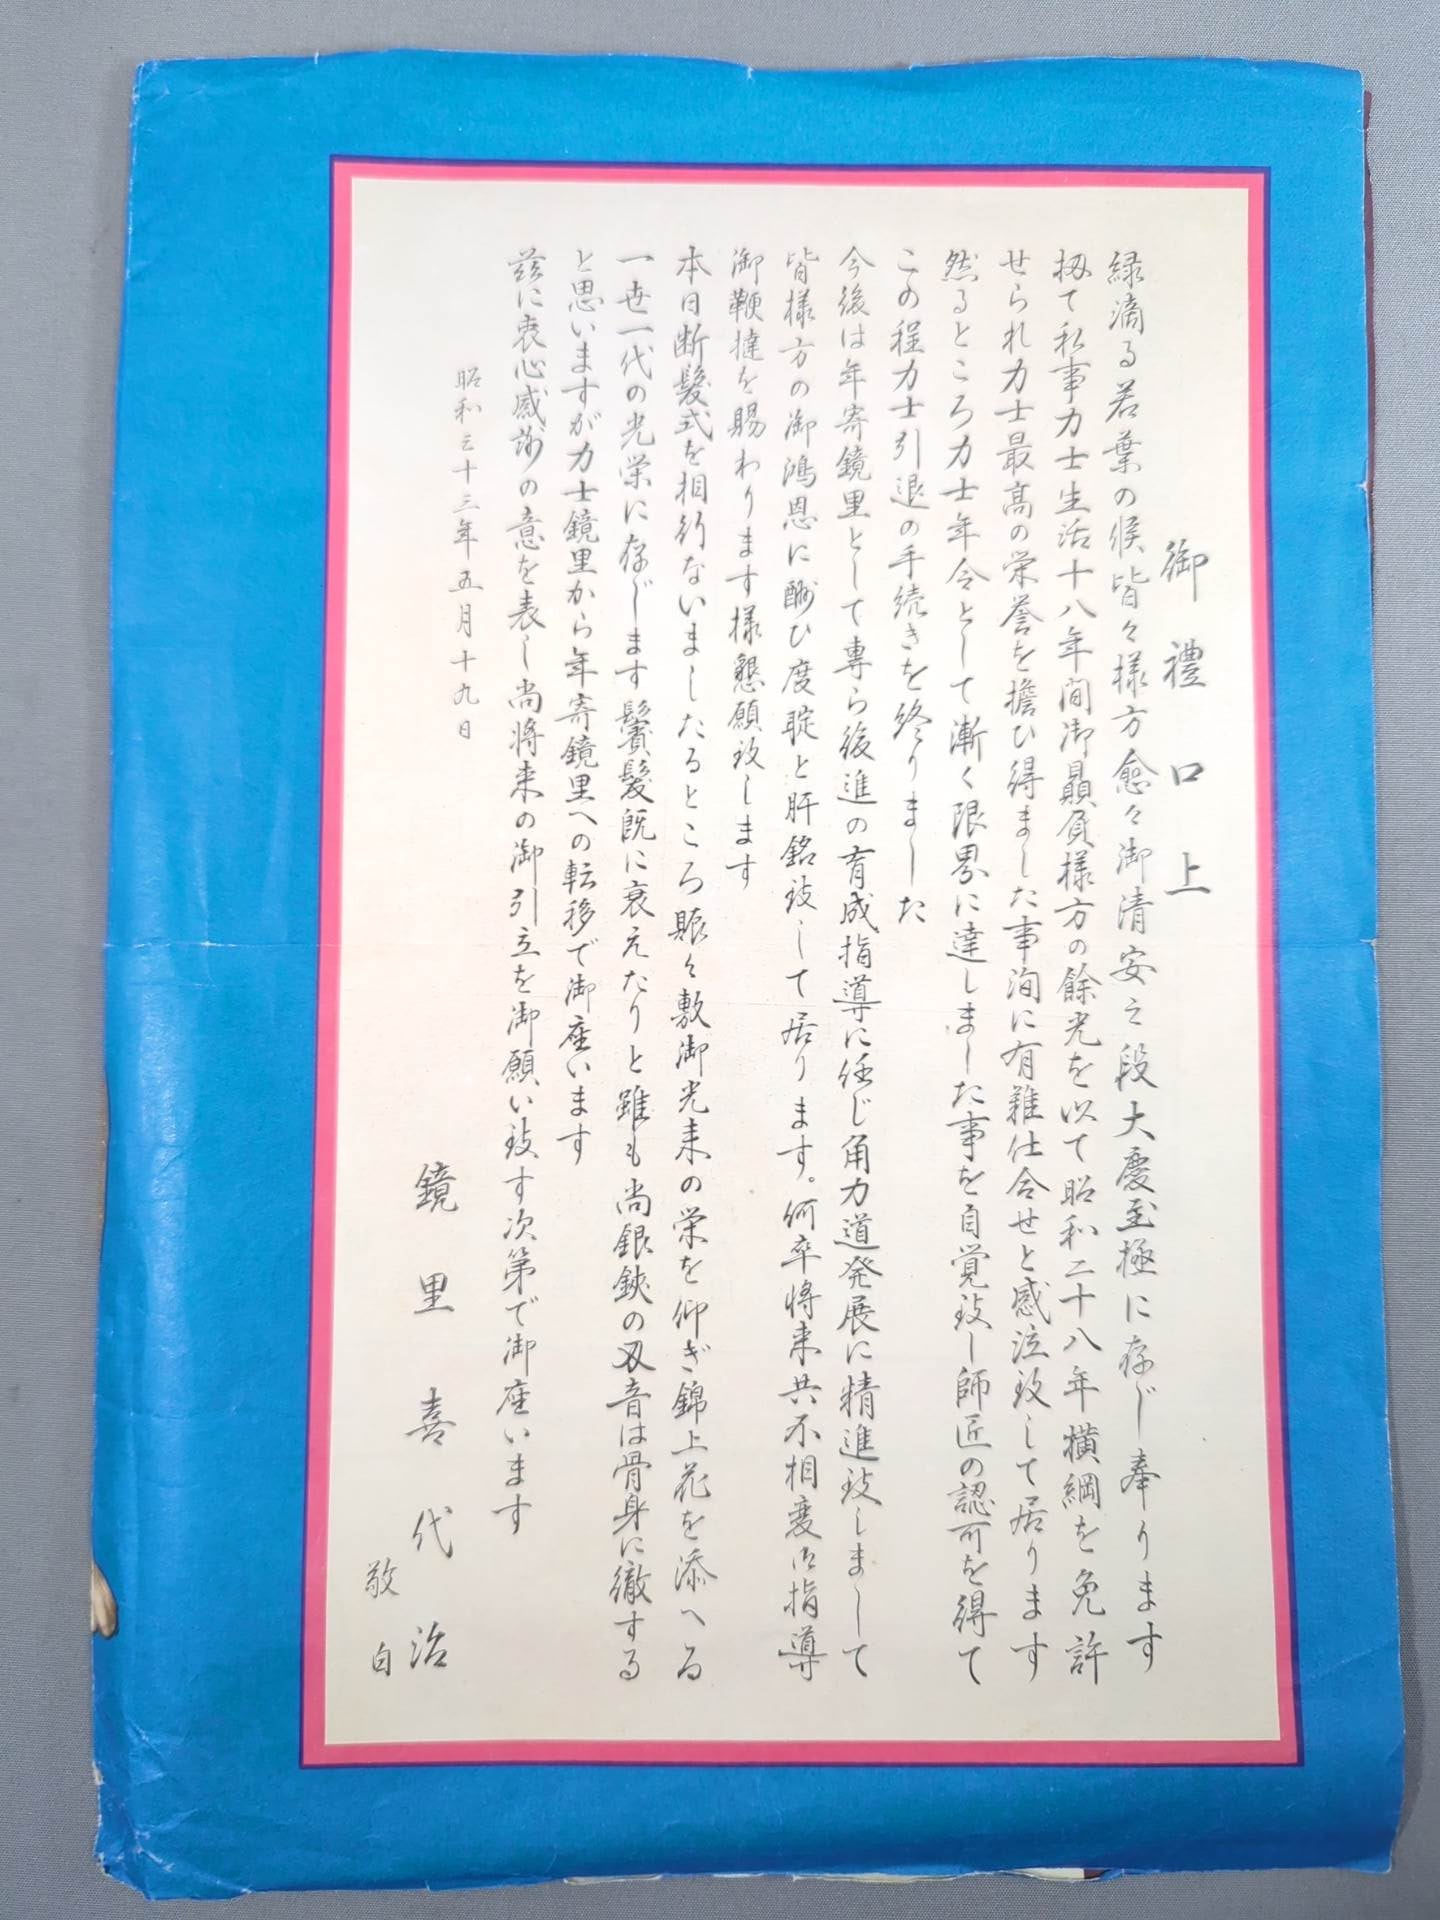 御禮口上
緑滴る若葉の候皆々様方愈々御清安之段大慶至極に存じ奉ります
扨て私事力士生活十八年間御贔屓様方の餘光を以て昭和二十八年横綱を免許
せられ力士最高の栄誉を擔ひ得ました事洵に有難仕合せと感泣致して居ります
然るところ力士年令として漸く限界に達しました事を自覚致し師匠の認可を得て
この程力士引退の手続きを終りました
今後は年寄鏡里として専ら後進の育成指導に任じ角力道発展に精進致しまして
皆様方の御鴻恩に酬ひ度聢と肝銘致して居ります。何卒将来共不相変御指導
御鞭撻を賜わります様懇願致します
本日断髪式を相行ないましたるところ賑々敷御光来の栄を仰ぎ錦上花を添へる
一世一代の光栄に存じます鬢髪既に衰えたりと雖も尚銀鋏の刄音は骨身に徹する
と思いますが力士鏡里から年寄鏡里への転移で御座います
茲に衷心感謝の意を表し尚将来の御引立を御願い致す次第で御座います
昭和三十三年五月十九日
鏡里喜代治
敬白